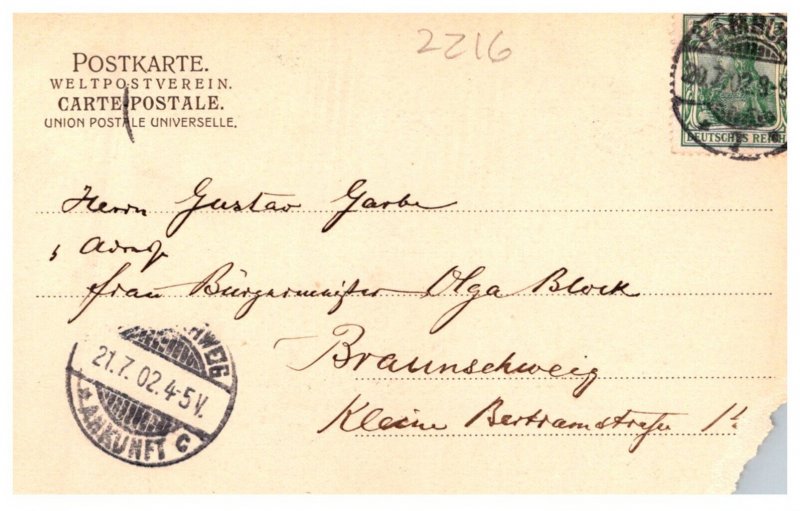 2216
POSTKARTE.
WELTPOSTVEREIN.
CARTE POSTALE.
UNION POSTALE UNIVERSELLE.
HAMBUR
20.7.02.8-9
DEUTSCHES REICH
Herrn Gustav Garbe
frau Bürgermeister Olga Block
Braunschweig
Kleine Bertramstraße
CHWEIG
21.7.02.4-5V.
*ANKUNFT C